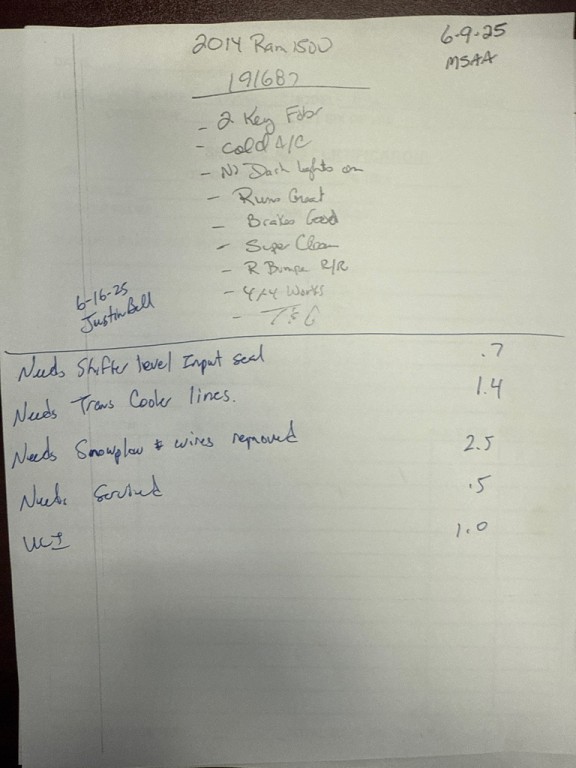 2014 Ram 1500
6-9-25
MSAA
191687
- 2 Key Fobs
- Cold A/C
- No Dash lights on
- Runs Great
- Brakes Good
- Super Clean
- R Bumper R/R
- 4x4 Works
- T&C
6-16-25
Justin Bell
Needs Shifter level Input seal .7
Needs Trans Cooler lines. 1.4
Needs Snowplow & wires removed 2.5
Needs Serviced .5
UCI 1.0